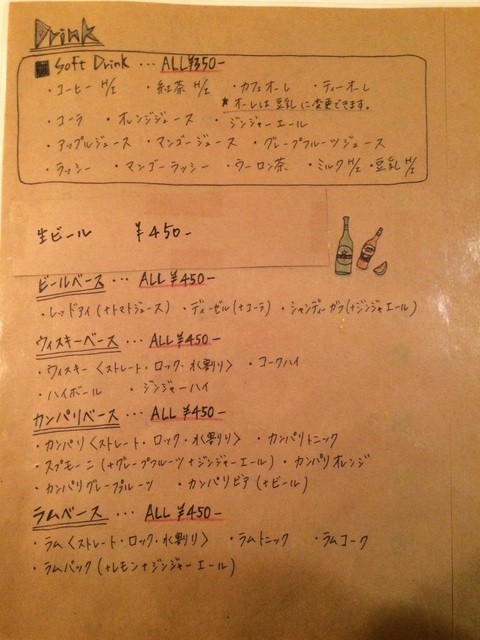 Drink
Soft Drink ... ALL ¥350-
・コーヒー H/I ・紅茶 H/I ・カフェオーレ ・ティーオーレ
★オーレは豆乳に変更できます。
・コーラ ・オレンジジュース ・ジンジャーエール
・アップルジュース ・マンゴージュース ・グレープフルーツジュース
・ラッシー ・マンゴーラッシー ・ウーロン茶 ・ミルク H/I ・豆乳 H/I
生ビール ¥450-
ビールベース ... ALL ¥450-
・レッドアイ(+トマトジュース) ・ディーゼル(+コーラ) ・シャンディーガフ(+ジンジャエール)
ウィスキーベース ... ALL ¥450-
・ウィスキー〈ストレート・ロック・水割り〉 ・コークハイ
・ハイボール ・ジンジャーハイ
カンパリベース ... ALL ¥450-
・カンパリ〈ストレート・ロック・水割り〉 ・カンパリトニック
・スプモーニ(+グレープフルーツ+ジンジャーエール) ・カンパリオレンジ
・カンパリグレープフルーツ ・カンパリビア(+ビール)
ラムベース ... ALL ¥450-
・ラム〈ストレート・ロック・水割り〉 ・ラムトニック ・ラムコーク
・ラムバック(+レモン+ジンジャーエール)